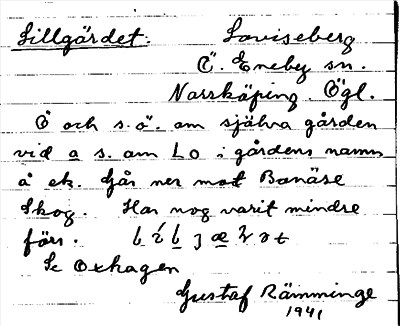 Lillgärdet: Loviseberg
Ö. Eneby sn.
Norrköping. Ögl.
Ö och s.ö. om själva gården
vid a s. om Lo i gårdens namn
å ek. Går ner mot Banäse
Skog. Har nog varit mindre
förr.
Se Oxhagen
Gustaf Rämminge
1941